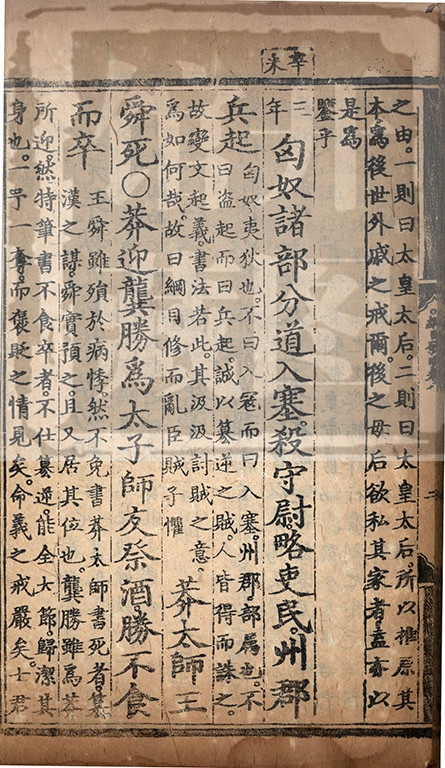 辛未
之由。一則曰太皇太后。二則曰太皇太后。所以推原其
本。爲後世外戚之戒爾。後之母后欲私其家者。盍亦以
是爲
鑒乎
三年
匈奴諸部分道入塞。殺守尉略吏民。州郡
兵起
匈奴夷狄也。不曰入寇而曰入塞。州郡部屬也。不
曰盜起而曰兵起。誠以篡逆之賊。人皆得而誅之。
故變文起義。書法若此。其汲汲討賊之意。
爲如何哉。故曰綱目修而亂臣賊子懼
莽太師王
舜死○莽迎龔勝爲太子師友祭酒。勝不食
而卒
王舜雖殞於病悸。然不免書莽太師書死者。篡
漢之謀。舜實預之。且又居其位也。龔勝雖爲莽
所迎。然特筆書不食卒者。不仕篡逆。能全大節。歸潔其
身也。一予一奪。而褒貶之情見矣。命義之戒嚴矣。士君